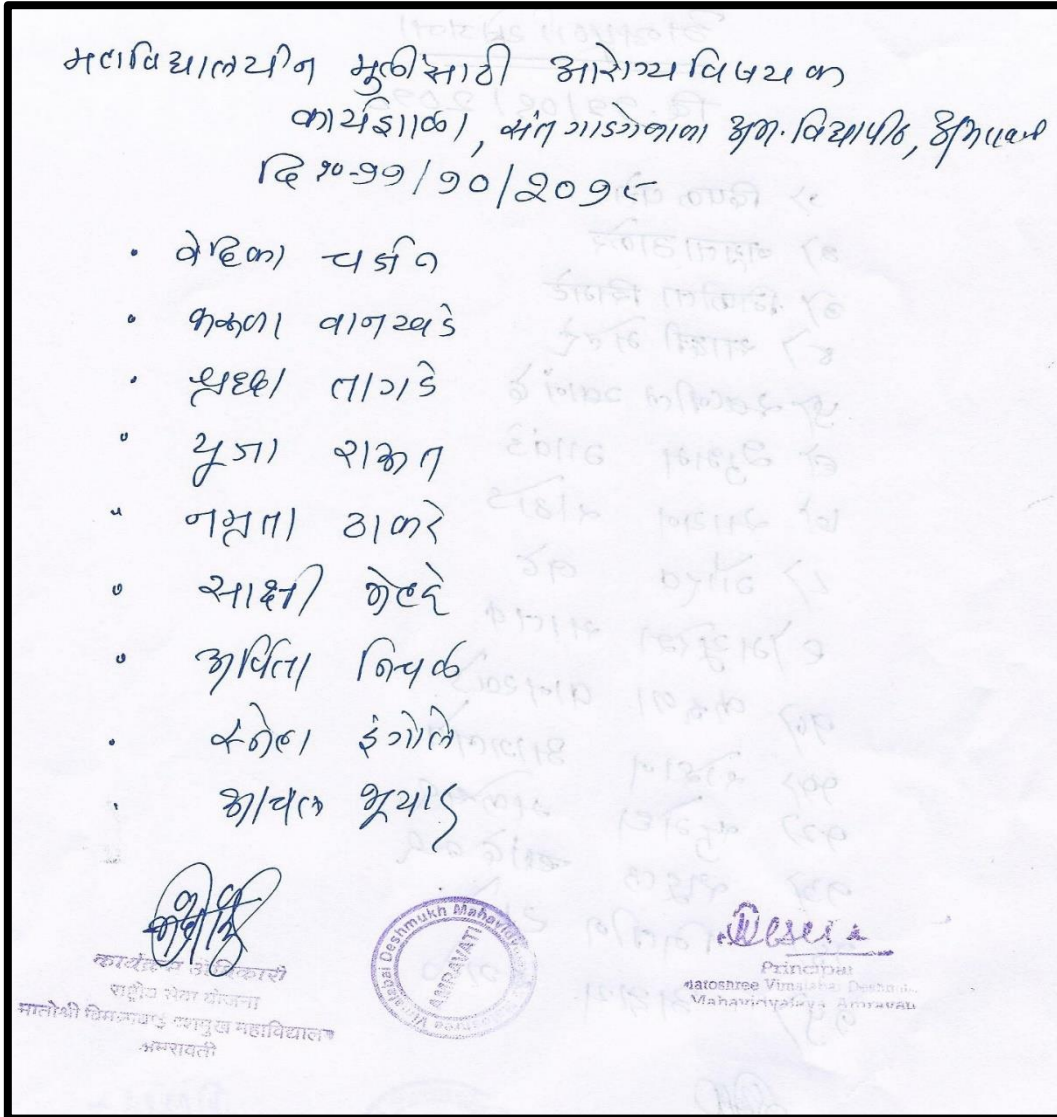 महाविद्यालयीन मुलींसाठी आरोग्यविषयक
कार्यशाळा, संत गाडगेबाबा अम. विद्यापीठ, अमरावती
दि १०-११/१०/२०१८
• वेदिका चर्जन
• करुणा वानखडे
• श्रध्दा तागडे
• पूजा राऊत
• नम्रता ठाकरे
• साक्षी मेटदे
• अर्पिता निचळ
• स्नेहा इंगोले
• आचल भूयार
कार्यक्रम अधिकारी
राष्ट्रीय सेवा योजना
मातोश्री विमलाबाई देशमुख महाविद्यालय
अमरावती
Matoshree Vimalabai Deshmukh Mahavidyalaya
AMRAVATI
Principal
Matoshree Vimalabai Deshmukh
Mahavidyalaya Amravati